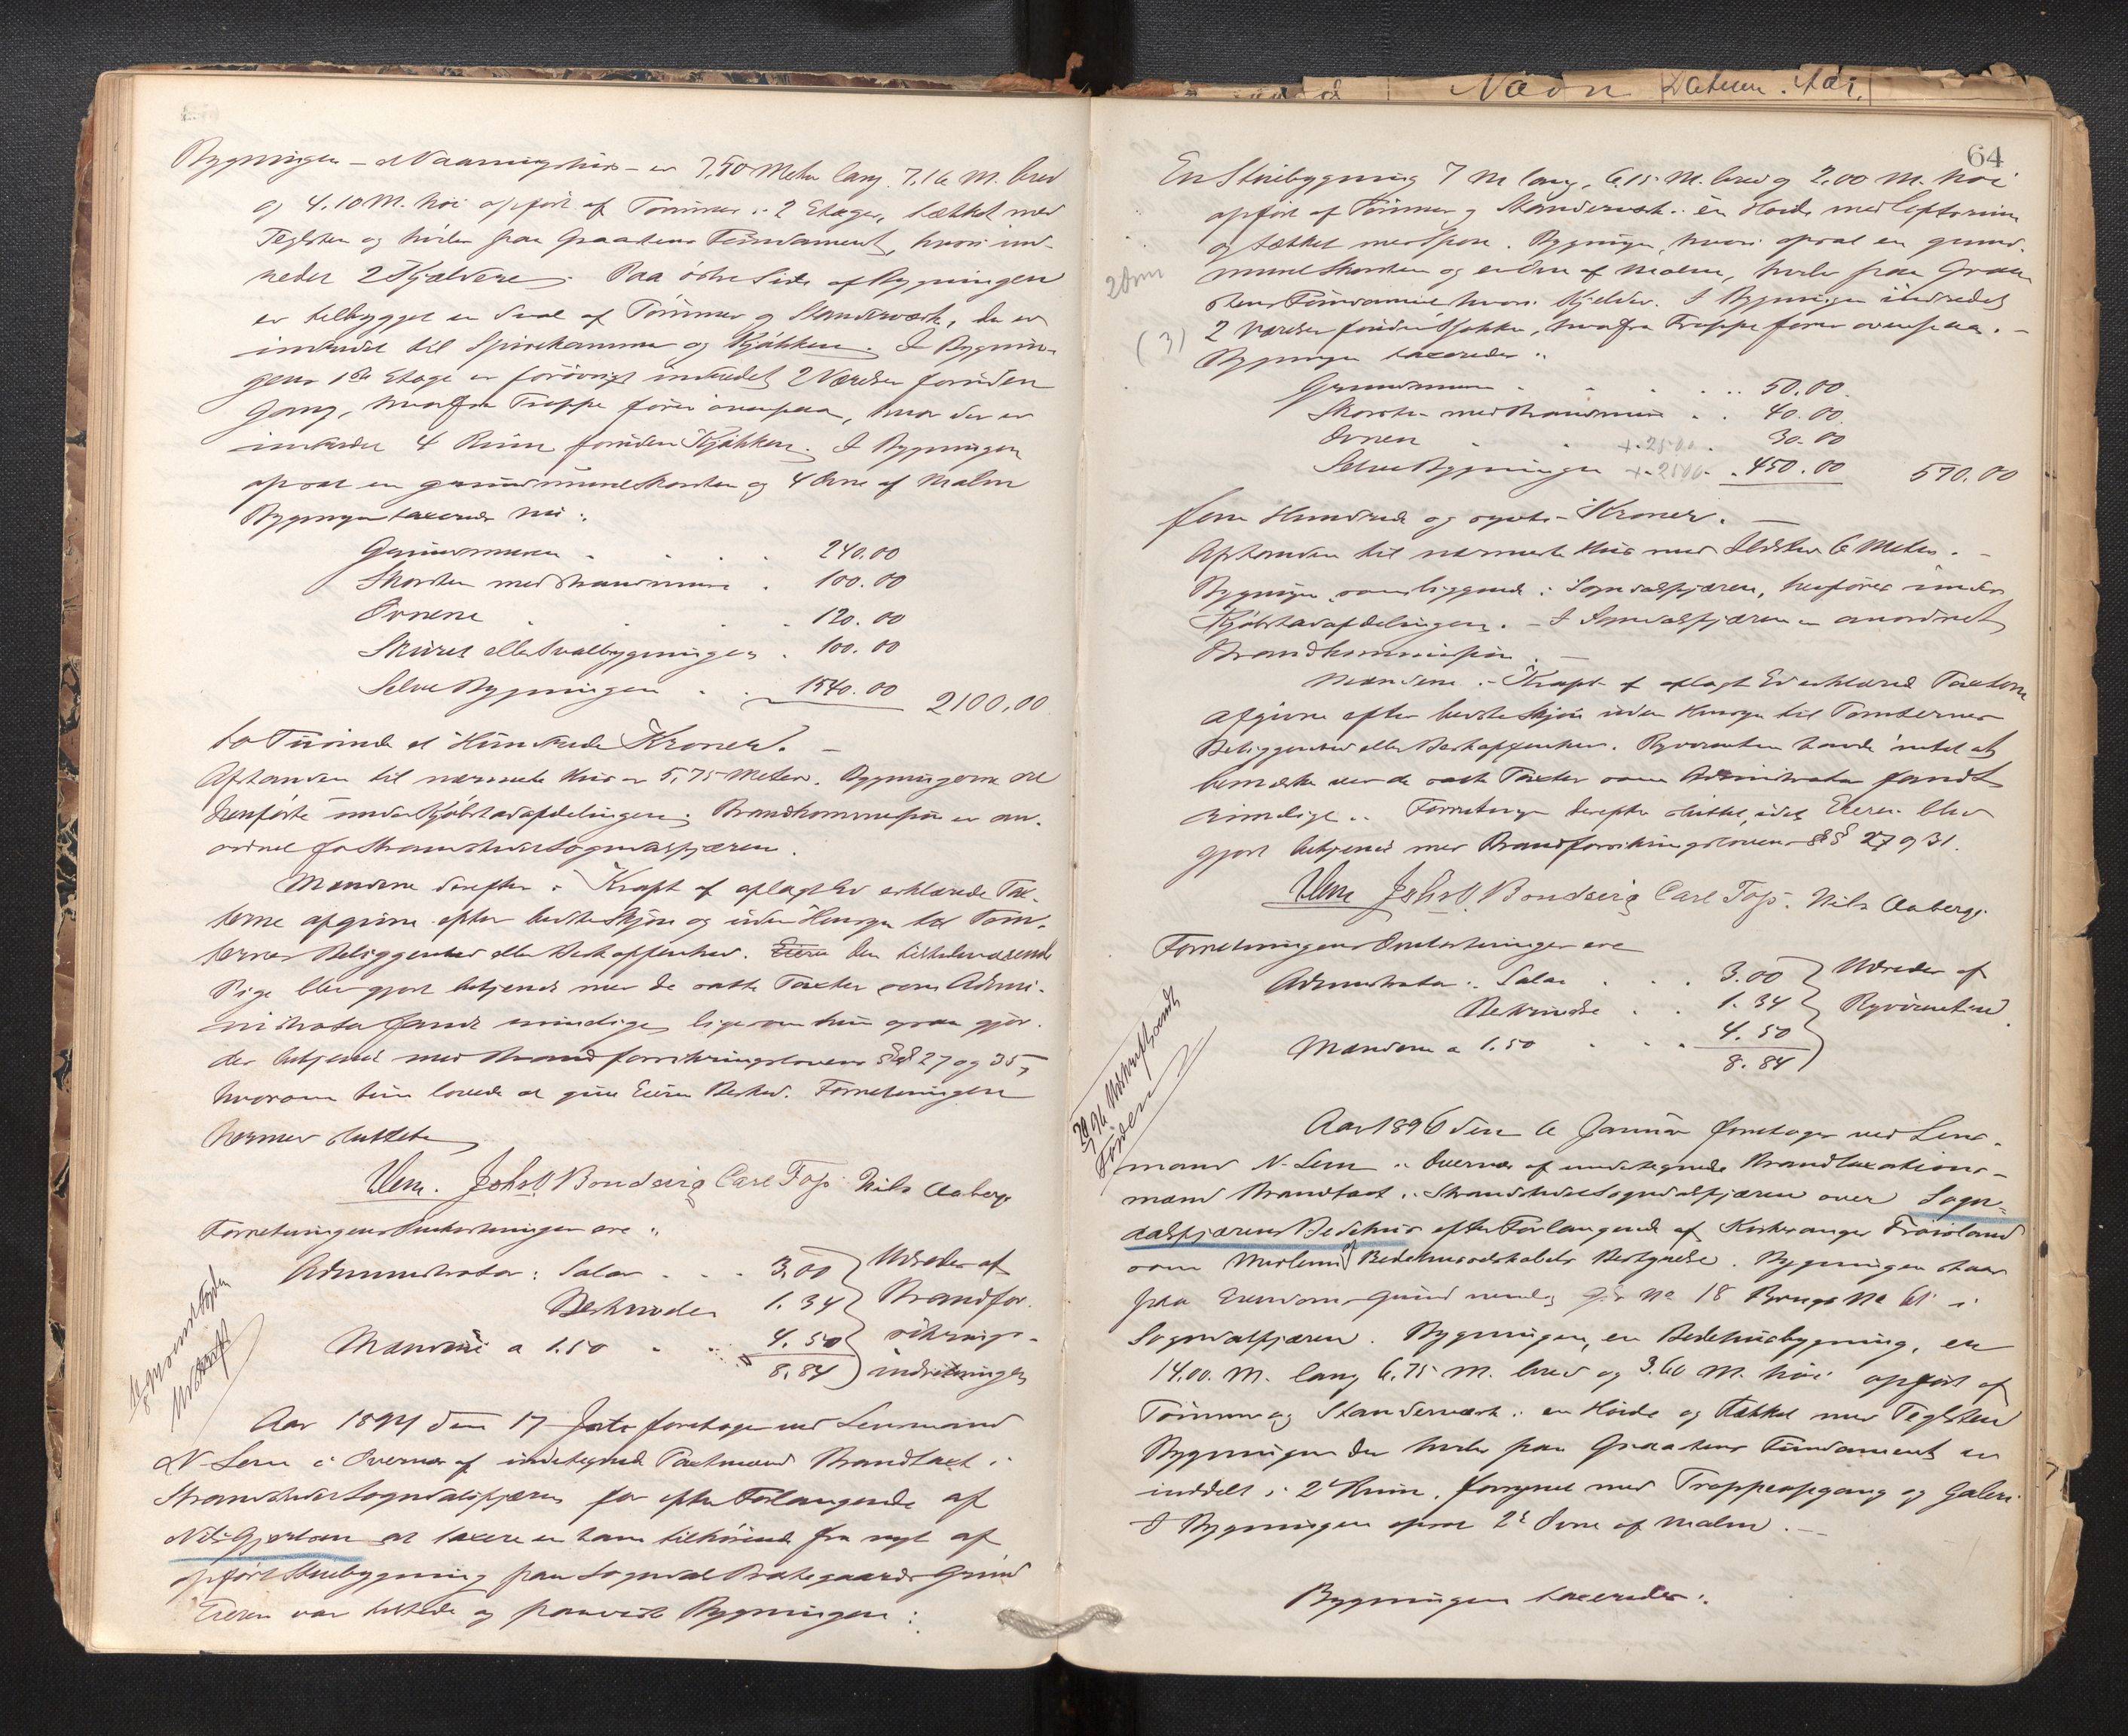 Bygningen – et Vaaningshus – er 7,50 Meter lang 7.16 M. bred
og 4.10 M. høi opført af Tømmer i 2 Etager, tækket med
Teglsten og hviler paa Graastens Fundament, hvori ind-
redet 2 Kjældere. Paa østre Side af Bygningen
er tilbygget en Sval af Tømmer og Standerværk, der er
indredet til Spisekammer og Kjøkken. I Bygnin-
gens 1ste Etage er forøvrigt indredet 2 Værelser foruden
Gang, hvorfra Trappe fører ovenpaa, hvor der er
indredet 4 Rum foruden Kjøkken. I Bygningen
opsat en grundmuret Skorsten og 4 Ovne af Malm
Bygningen taxeredes nu:
Grundmuren . . . . 240.00
Skorsten med Brandmure . 100.00
Ovnene . . . . 120.00
Skuret eller Svalbygningen . 100.00
Selve Bygningen . . 1540.00 2100,00
to Tusinde et Hundrede Kroner. –
Afstanden til nærmeste Hus er 5,75 Meter. Bygningerne
henførte under Kjøbstadafdelingen. Brandkommission er an-
ordnet for Strandstedet Sogndalsfjæren.
Mændene derefter i Kraft af aflagt Ed erklærede Tax-
terne afgivne efter bedste Skjøn og uden Hensyn til Tom-
ternes Beliggenhed eller Beskaffenhed. Den tilstedeværende
Pige blev gjort bekjendt med de satte Taxter som Admi-
nistrator fandt rimelige, ligesom hun ogsaa gjor-
des bekjendt med Brandforsikringslovens §§ 27 og 35,
hvorom hun lovede at give Eieren Besked. Forretningen
dermed sluttet
N Lem. Johs O Bondevig Carl Foss Nils Aaberge
Forretningens Omkostninger ere:
Administrator: Salær . . . 3,00 Udredes af
Beskuedes 1.34 Brandfor-
Mændene a 1.50 . . 4.50 sikrings-
8.84 indretningen
Udskrift
Aar 1894 den 17 foretoges ved Lensmand
N Lem i Overvær af undertegnede Taxtmænd Brandtaxt i
Strandstedet Sogndalsfjæren for efter Forlangende af
Nils Gjertsen at taxere en ham tilhørende fra nyt af
opført Stuebygning paa Sogndal Prestegaards Grund
Eieren var tilstede og paaviste Bygningen:
Navn Datum. Aar.
64
En Stuebygning 7 M lang, 6,15 M. bred og 2,00 M. høi
opført af Tømmer og Standerværk i en Høide med Loftsrum
og tækket med Spon. Bygningen, hvori opsat en grund-
muret Skorsten og en Ovn af Malm, hviler paa Graa-
stens Fundament hvori Kjelder. I Bygningen indredet
2 Værelser foruden Kjøkken, hvorfra Trappe fører ovenpaa. –
(3)
Bygningen taxeredes:
Grundmuren . . . . . 50.00.
Skorsten med Brandmure . . 40.00.
Ovnen . . + 25.00. 30.00
Selve Bygningen + 25.00 . 450.00 570.00
fem Hundrede og sytti Kroner. –
Afstanden til nærmeste Hus med Ildsted 6 Meter. –
Bygningen som liggende i Sogndalsfjæren, henføres under
Kjøbstadafdelingen. – I Sogndalsfjæren er anordnet
Brandkommission. –
Mændene i Kraft af aflagt Ed erklærede Taxterne
afgivne efter bedste Skjøn uden Hensyn til Tomternes
Beliggenhed eller Beskaffenhed. Rekvirenten havde intet at
bemærke ved de satte Taxter som Administrator fandt
rimelige. Forretningen derefter sluttet, idet Eieren blev
gjort bekjendt med Brandforsikringslovens §§ 27 og 31.
N Lem Johs O. Bondevig Carl Foss. Nils Aaberge.
Forretningens Omkostninger ere
Administrator: Salær . . . 3.00 Udredes af
. . 1.34 Rekvirenten.
Mændene a 1.50 . . . 4.50
8.84
Udskrift sendt
Aar 1896 den 6 Januar foretoges ved Lens-
mand N. Lem i Overvær af undertegnede Brandtaxations-
mænd Brandtaxt i Strandstedet Sogndalsfjæren over Sogn-
dalsfjærens Bedehus efter Forlangende af Kirkesanger Frøisland
som Medlem af Bedehusselskabets Bestyrelse. Bygningen staar
paa Eiendoms Grund nemlig G. No 18 Brugs No 61 i
Sogndalsfjæren. Bygningen, en Bedehusbygning, er
14.00. M. lang 6.75 M. bred og 3.60 M. høi opført af
Tømmer og Standerværk i en Høide og tækket med Teglsten
Bygningen der hviler paa Graastens Fundament er
inddelt i 2 Rum, forsynet med Trappeopgang og Galeri
I Bygningen opsat 2 Ovne af Malm. –
Bygningen taxeredes: